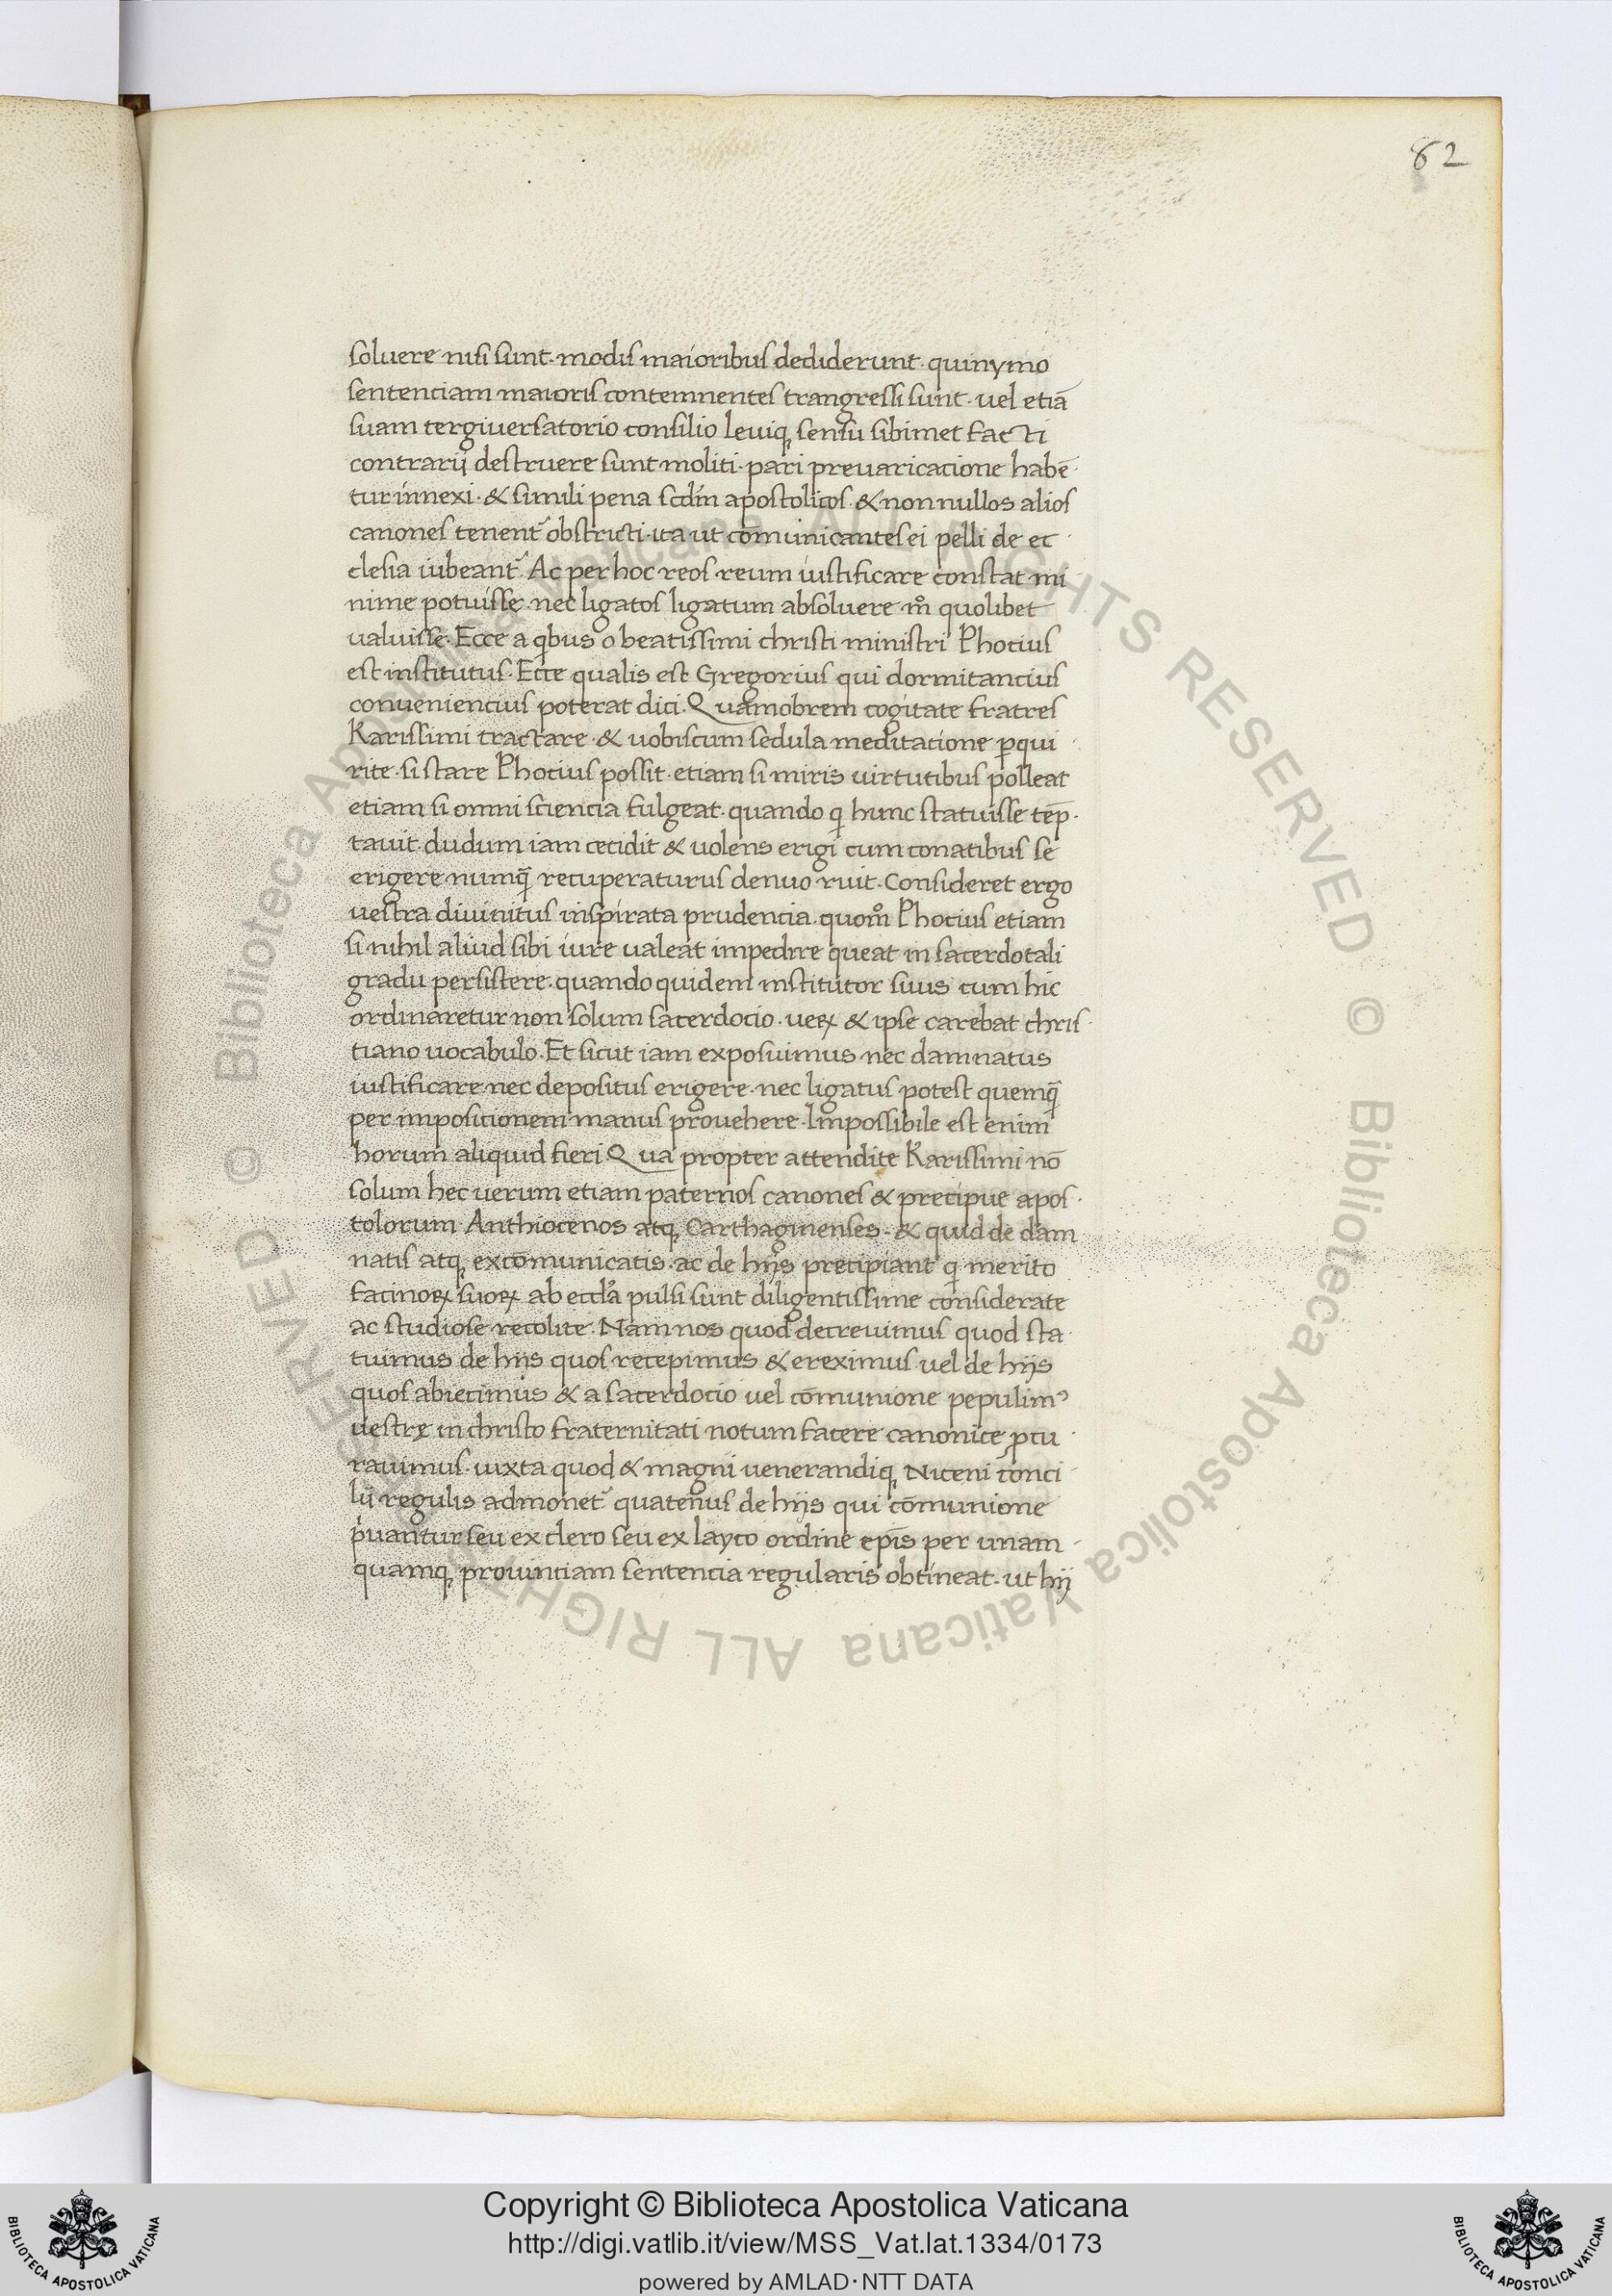 82
soluere nisi sunt. modis maioribus dediderunt. quinymo
sentenciam maioris contemnentes trangressi sunt. uel etiā
suam tergiuersatorio consilio leuiq; sensu sibimet facti
contrarij destruere sunt moliti. pari preuaricatione habē
tur innexi. & simili pena scdm̄ apostolicos. & nonnullos alios
canones tenent᷑ obstricti. ita ut cōmunicantes ei pelli de ec
clesia iubeant᷑. Ac per hoc reos reum iustificare constat mi
nime potuisse. nec ligatos ligatum absoluere mͦ quolibet
ualuisse. Ecce a qͥbus o beatissimi christi ministri Photius
est institutus. Ecce qualis est Gregorius qui dormitancius
conueniencius poterat dici. Quamobrem cogitate fratres
Karissimi tractare. & uobiscum sedula meditatione ꝑqui
rite. si stare Photius possit. etiam si miris uirtutibus polleat
etiam si omni sciencia fulgeat. quando qͥ hunc statuisse tēp
tauit. dudum iam cecidit & uolens erigi cum conatibus se
erigere numq̄ recuperaturus denuo ruit. Consideret ergo
uestra diuinitus inspirata prudencia. quomͦ Photius etiam
si nihil aliud sibi iure ualeat impedire queat in sacerdotali
gradu persistere. quando quidem institutor suus cum hic
ordinaretur non solum sacerdocio. ueꝝ & ipse carebat chris
tiano uocabulo. Et sicut iam exposuimus nec damnatus
iustificare nec depositus erigere. nec ligatus potest quemq̄
per impositionem manus prouehere. Impossibile est enim
horum aliquid fieri Qua propter attendite Karissimi nō
solum hec uerum etiam paternos canones & precipue apos
tolorum Anthiocenos atq; Carthaginenses. & quid de dam
natis atq; excōmunicatis. ac de hijs precipiant qͥ merito
facinoꝝ suoꝝ ab eccl̓a pulsi sunt diligentissime considerate
ac studiose recolite. Nam nos quod decreuimus quod sta
tuimus de hijs quos recepimus & ereximus uel de hijs
quos abiecimus & a sacerdocio uel cōmunione pepulimꝰ
uestrę in christo fraternitati notum facere canonice ꝓcu
rauimus. iuxta quod & magni uenerandiq; Niceni conci
lij regulis admonet᷑ quatenus de hijs qui cōmunione
pͥuantur seu ex clero seu ex layco ordine ep̄is per unam
quamq; prouinciam sentencia regularis obtineat. ut hij
Copyright © Biblioteca Apostolica Vaticana
http://digi.vatlib.it/view/MSS_Vat.lat.1334/0173
powered by AMLAD·NTT DATA
BIBLIOTECA APOSTOLICA VATICANA
BIBLIOTECA APOSTOLICA VATICANA
© Biblioteca Apostolica Vaticana ALL RIGHTS RESERVED
© Biblioteca Apostolica Vaticana ALL RIGHTS RESERVED